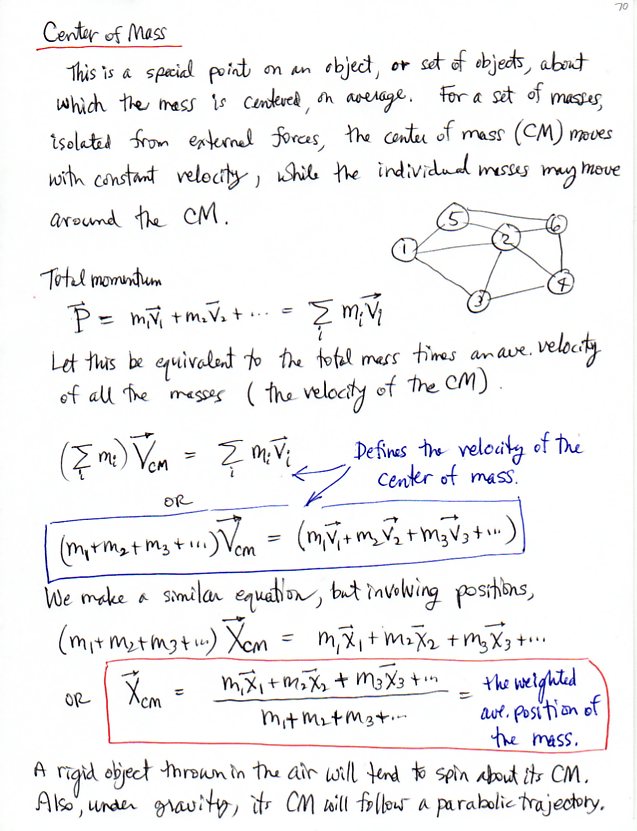 70
Center of Mass
This is a special point on an object, or set of objects, about
which the mass is centered, on average. For a set of masses,
isolated from external forces, the center of mass (CM) moves
with constant velocity, while the individual masses may move
around the CM.
5 6
1 2
3 4
Total momentum
P⃗ = m₁v⃗₁ + m₂v⃗₂ + ··· = ∑ᵢ mᵢv⃗ᵢ
Let this be equivalent to the total mass times an ave. velocity
of all the masses (the velocity of the CM).
(∑ᵢ mᵢ) V⃗CM = ∑ᵢ mᵢv⃗ᵢ
Defines the velocity of the
center of mass.
OR
(m₁+m₂+m₃+···) V⃗CM = (m₁v⃗₁+m₂v⃗₂+m₃v⃗₃+···)
We make a similar equation, but involving positions,
(m₁+m₂+m₃+···) X⃗CM = m₁x⃗₁+m₂x⃗₂+m₃x⃗₃+···
OR X⃗CM = (m₁x⃗₁+m₂x⃗₂+m₃x⃗₃+···)/(m₁+m₂+m₃+···) =
the weighted
ave. position of
the mass.
A rigid object thrown in the air will tend to spin about its CM.
Also, under gravity, its CM will follow a parabolic trajectory.